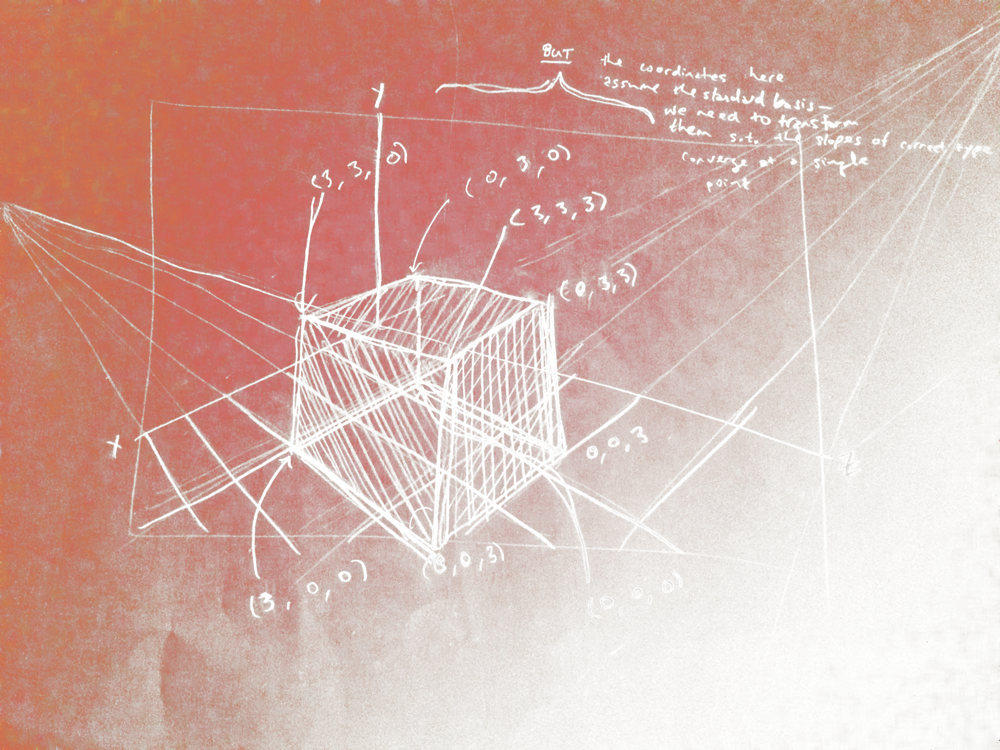 BUT
the coordinates here
assume the standard basis—
we need to transform
them s.t. the slopes of correct type
converge at a single
point
Y
(3, 3, 0)
(0, 3, 0)
(3, 3, 3)
(0, 3, 3)
X
0, 0, 3
z
(3, 0, 3)
(3, 0, 0)
(0, 0, 0)